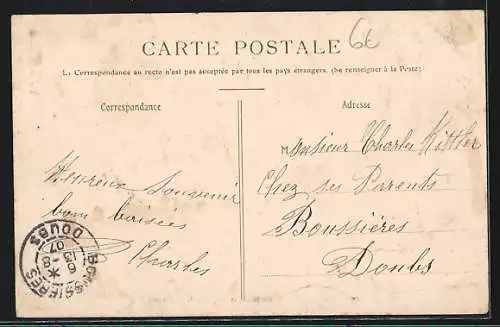 6c
CARTE POSTALE
La Correspondance au recto n'est pas acceptée par tous les pays étrangers. (Se renseigner à la Poste)
Correspondance
Adresse
Monsieur Charles Kittler
Chez ses Parents
Boussières
Doubs
Heureux Souvenir
bons baisers
Charles
BOUSSIERES
6
13 -8
07
DOUBS